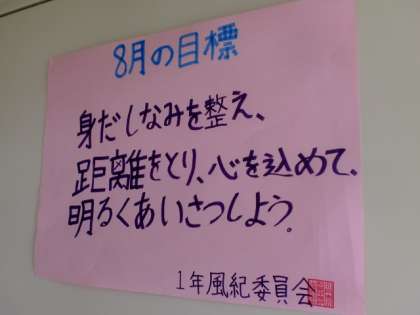 8月の目標
身だしなみを整え、
距離をとり、心を込めて、
明るくあいさつしよう。
1年風紀委員会